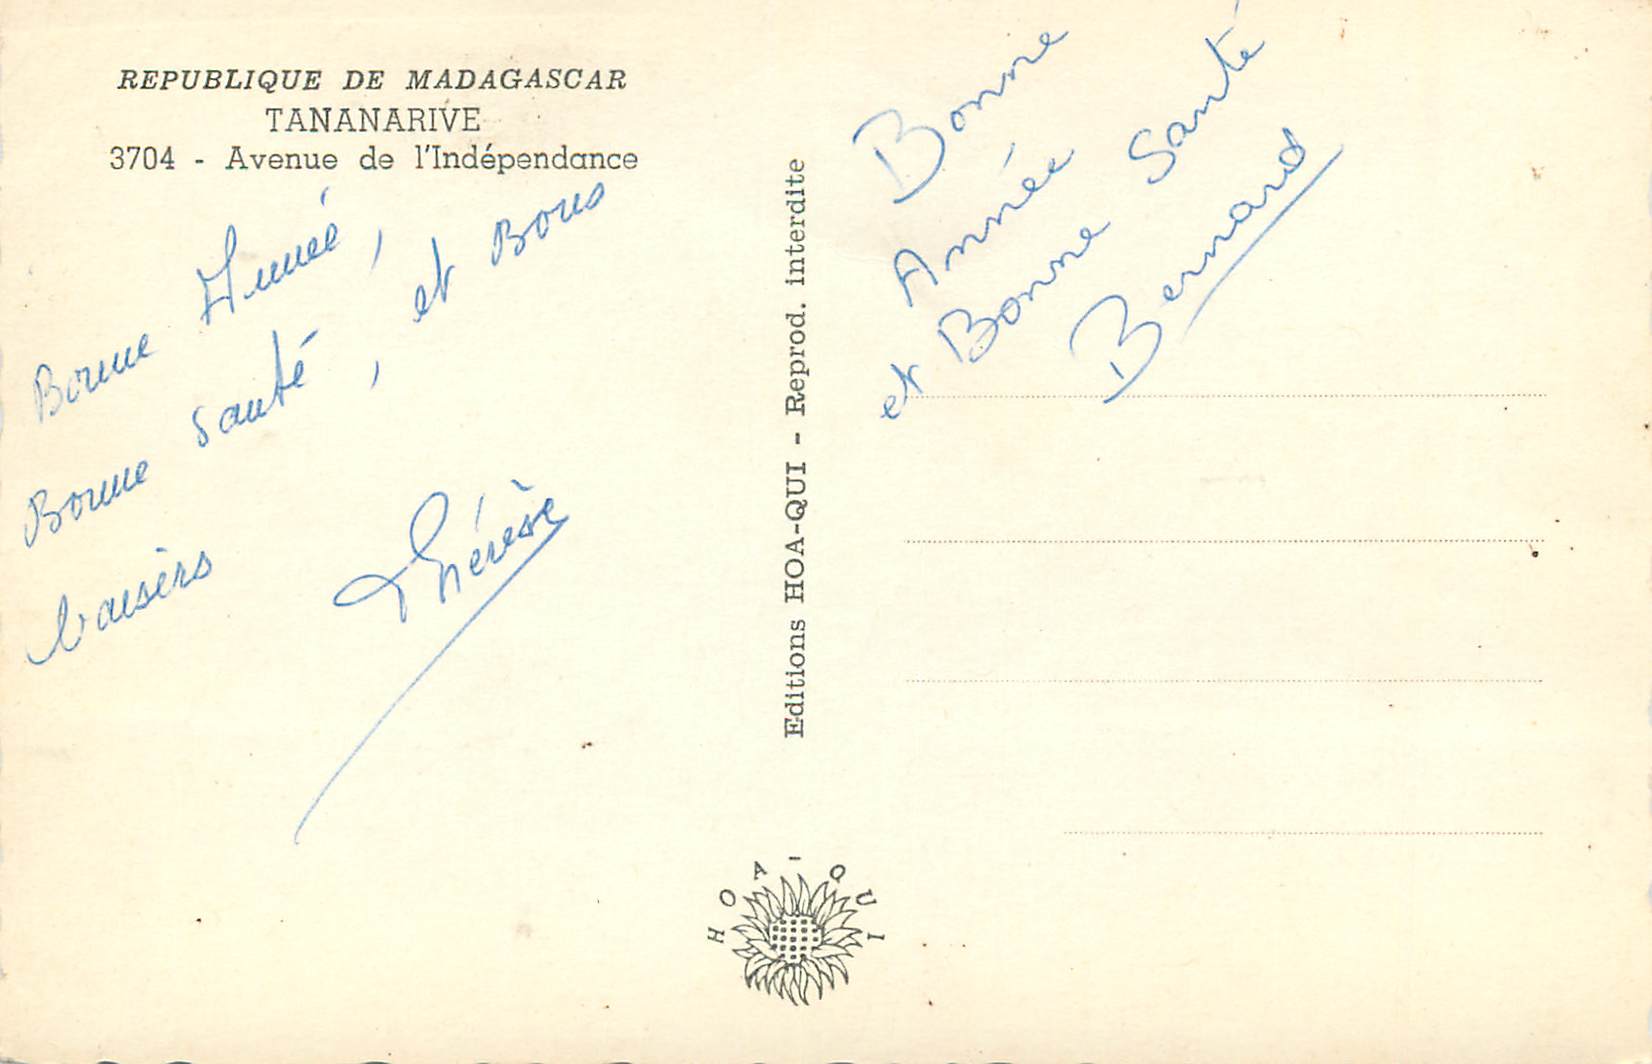 REPUBLIQUE DE MADAGASCAR
TANANARIVE
3704 - Avenue de l'Indépendance
Bonne Année,
Bonne santé, et Bons
baisers
Thérèse
Editions HOA-QUI - Reprod. interdite
Bonne
Année
et Bonne Santé
Bernard
HOA-QUI